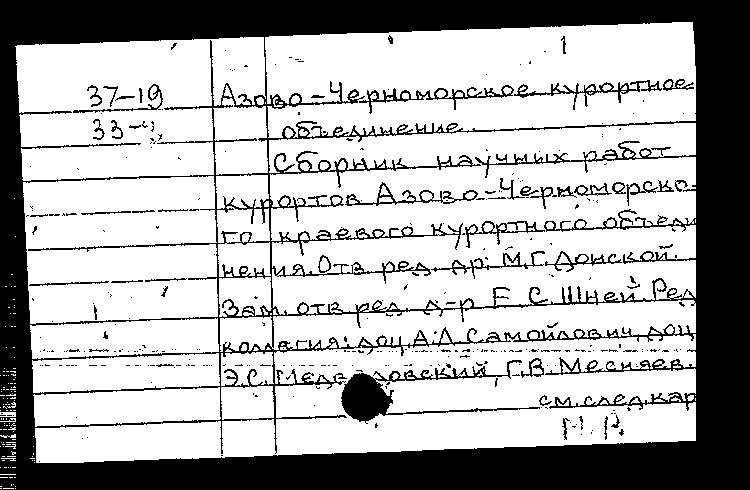 1
37-19 Азово-Черноморское курортное
33- объединение.
Сборник научных работ
курортов Азово-Черноморско-
го краевого курортного объеди
нения. Отв. ред. др. М.Г. Донской.
Зам. отв. ред. д-р Е. С. Шней. Ред
коллегия: доц. А.Л. Самойлович, доц
Э.С. Г.В. Месняев.
см. след. кар